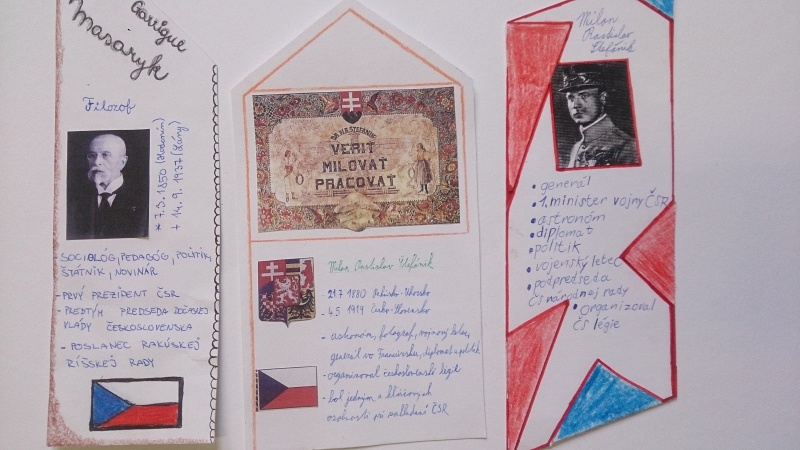 Garrigue
Masaryk
Filozof
* 7.3. 1850 (Hodonín)
+ 14.9. 1937 (Lány)
- SOCIOLÓG, PEDAGÓG, POLITIK,
ŠTÁTNIK, NOVINÁR
- PRVÝ PREZIDENT ČSR
- PREDTÝM PREDSEDA DOČASNEJ
VLÁDY ČESKOSLOVENSKA
- POSLANEC RAKÚSKEJ
RÍŠSKEJ RADY
DR. M.R. ŠTEFÁNIK:
VERIŤ
MILOVAŤ
PRACOVAŤ
Milan Rastislav Štefánik
- 21.7 1880 Uhorsko
- 4.5 1919 Česko-Slovensko
- astronóm, fotograf, vojnový letec,
generál vo Francúzsku, diplomat a politik
- organizoval československé légie
- bol jedným z kľúčových
osobností pri ČSR
Milan
Rastislav
Štefánik
• generál
• 1. minister vojny ČSR
• astronóm
• diplomat
• politik
• vojenský letec
• podpredseda
čs národnej rady
• organizoval
ČS légie